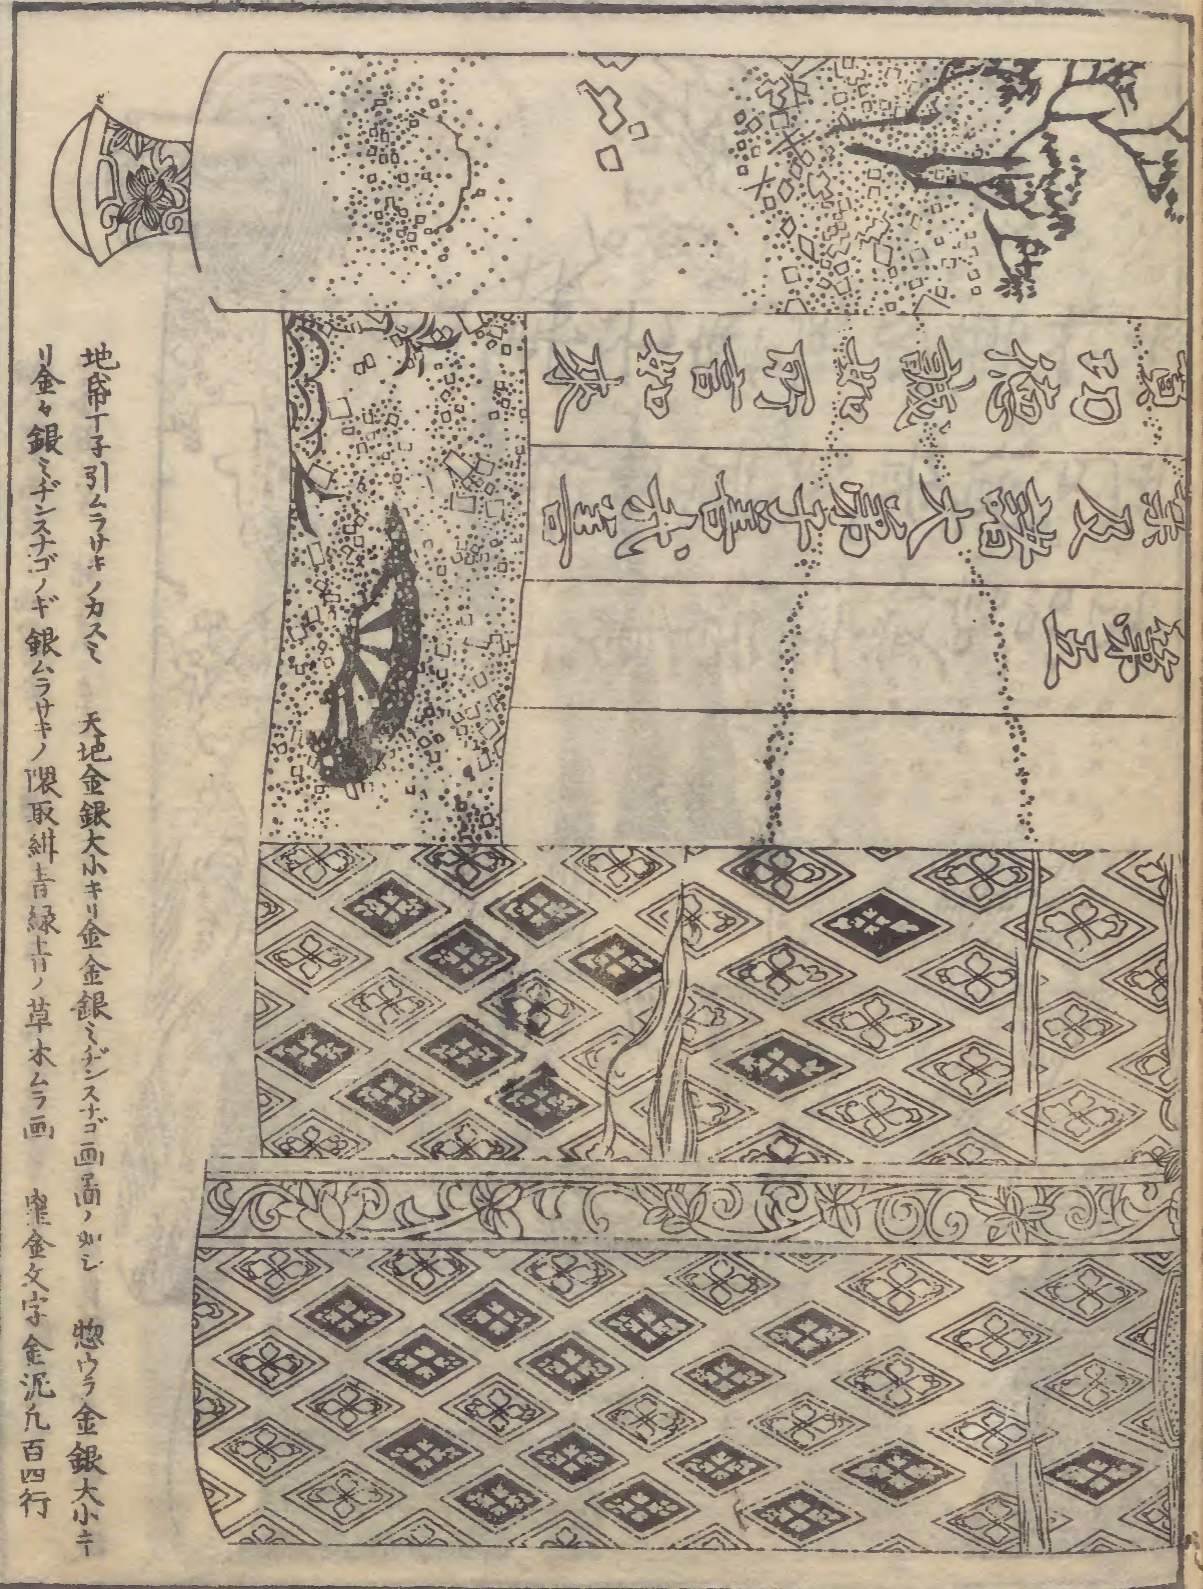 第五
葉及諸大弟子善哉善
實功德誠如所言如來
地帋丁子引ムラサキノカスミ　天地金銀大小キリ金金銀ミヂンスナゴ画圖ノ如シ　惣ウラ金銀大小キ
リ金々銀ミヂンスナゴノギ銀ムラサキノ隈取紺青緑青ノ草木ムラ画　罫金文字金泥凡百四行